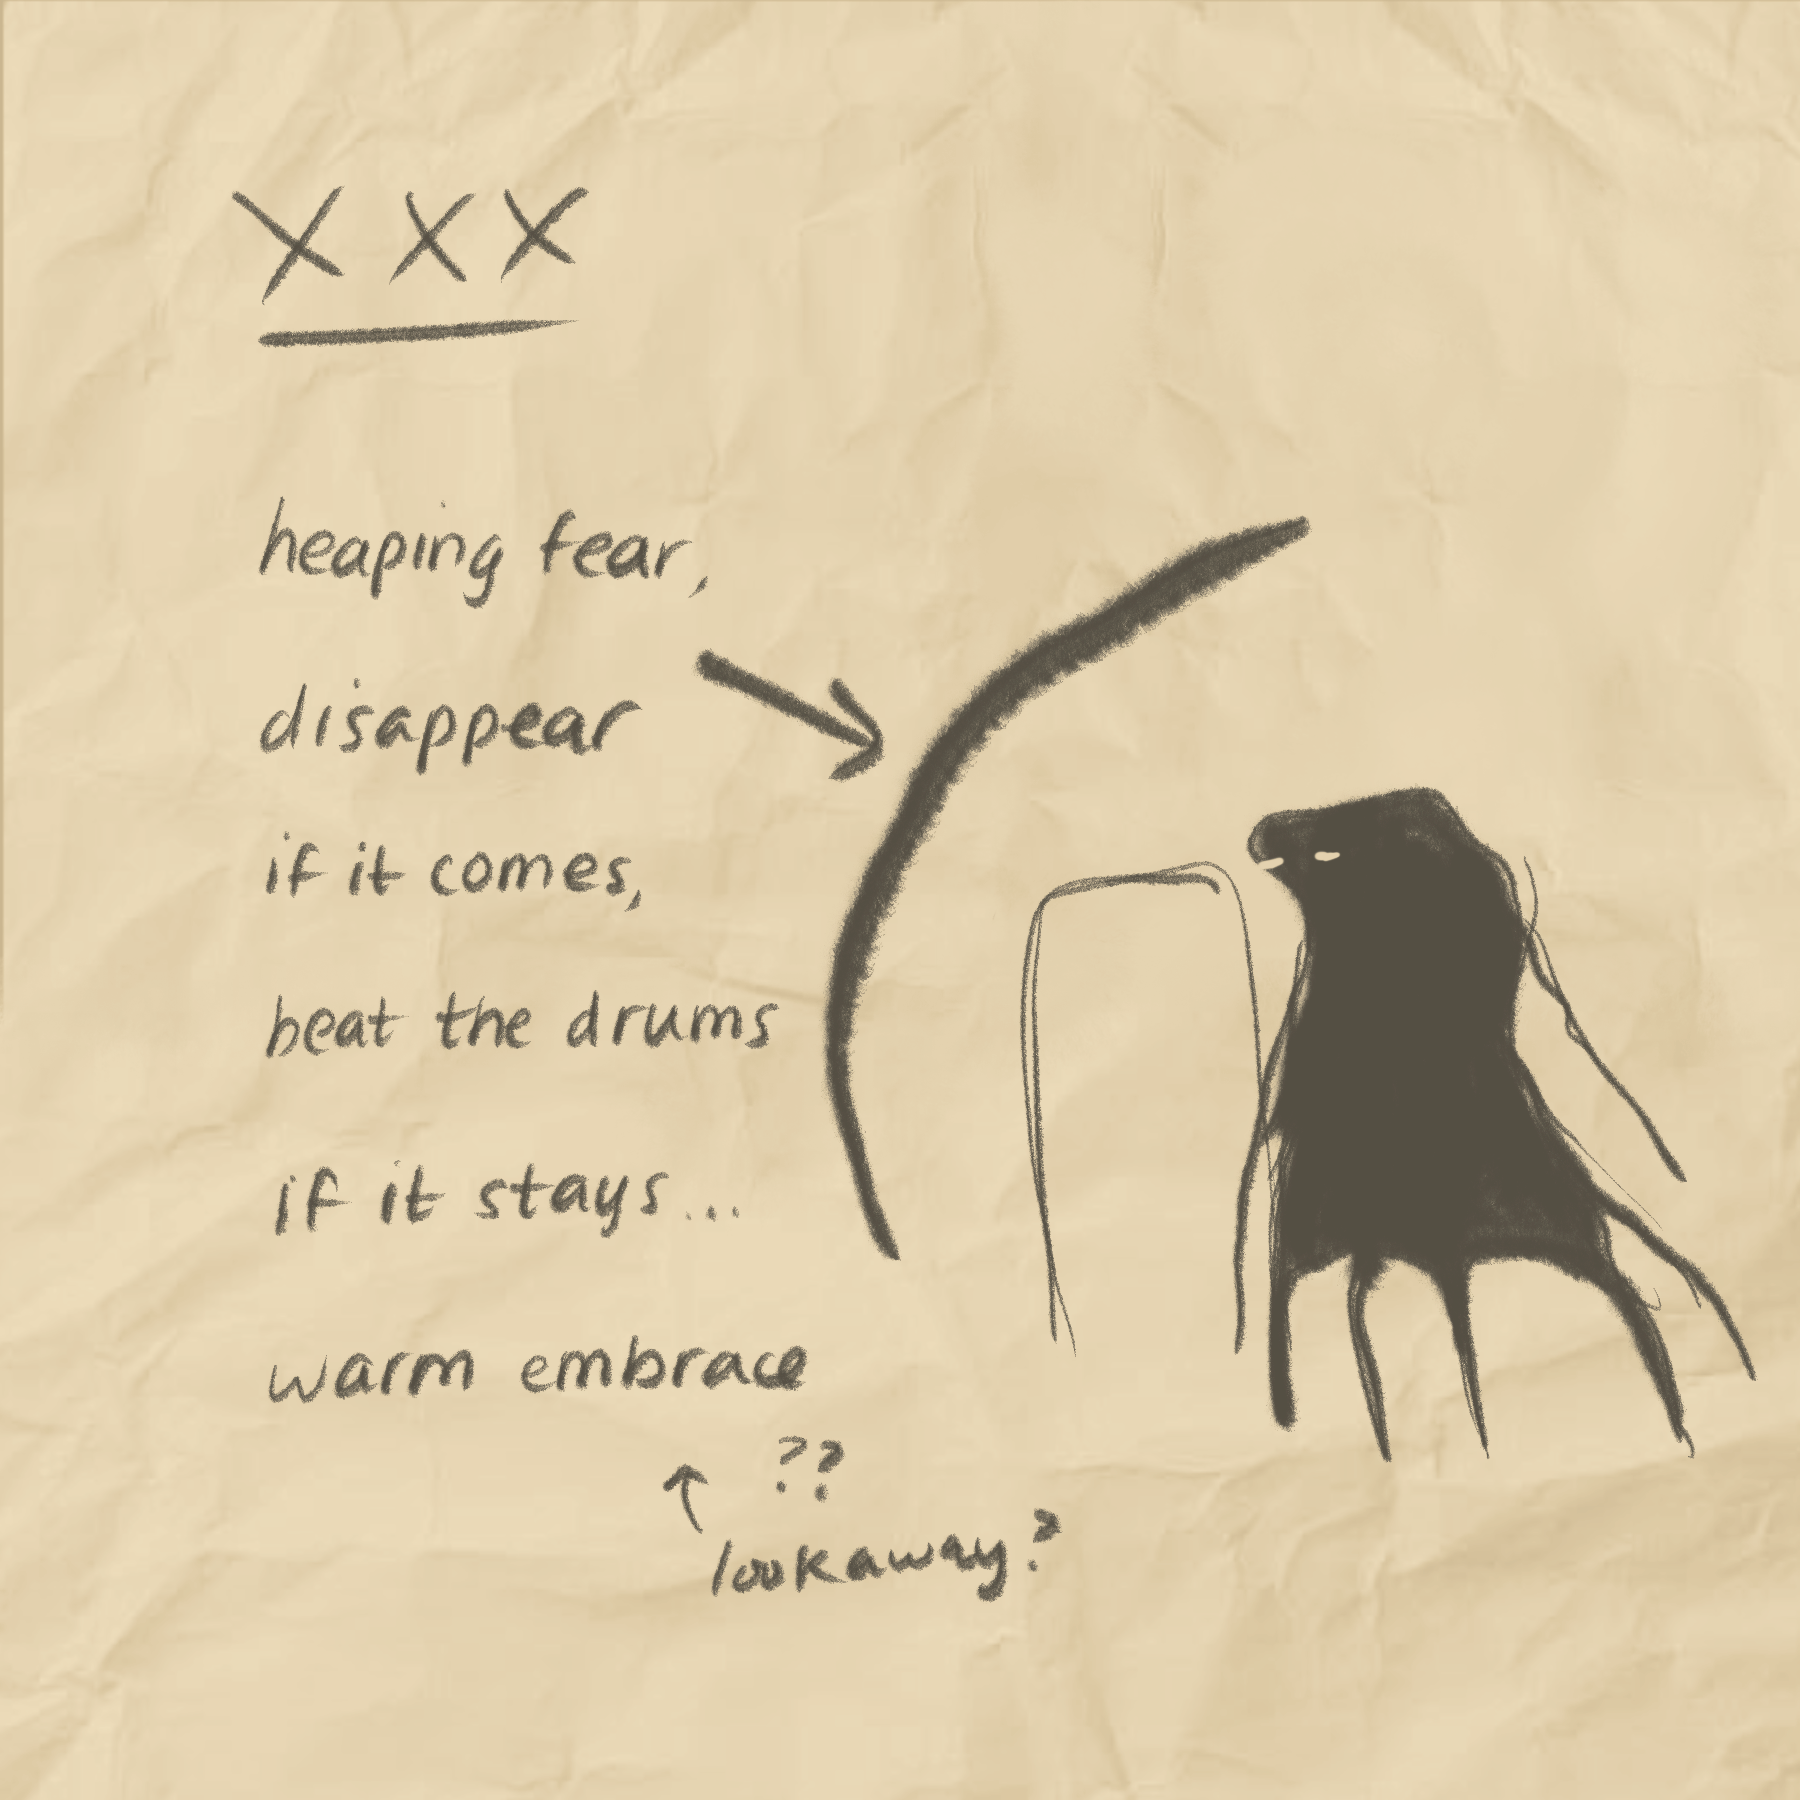 XXX
heaping fear,
disappear
if it comes,
beat the drums
if it stays...
warm embrace
??
lookaway?